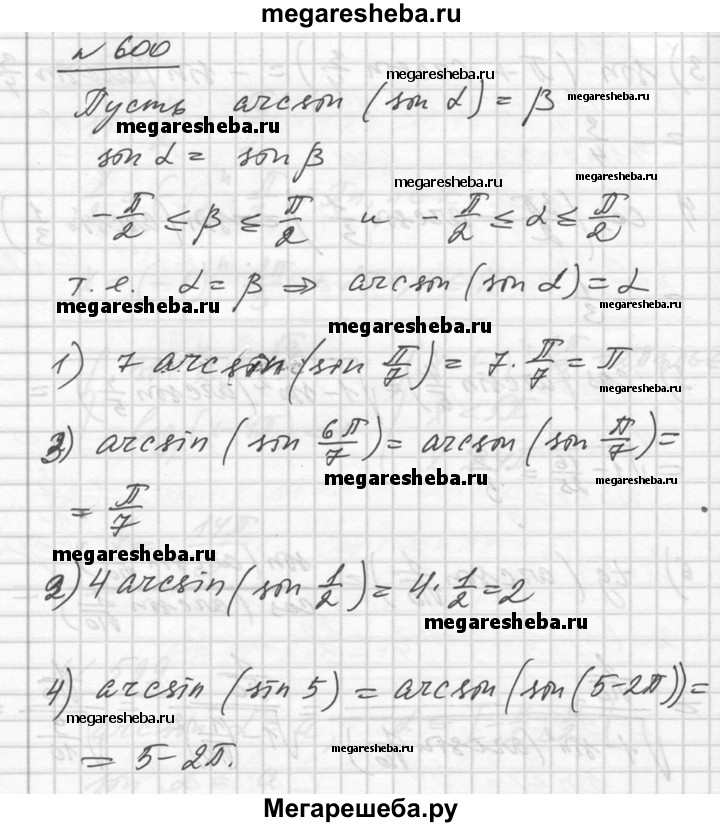 megaresheba.ru
№ 600
megaresheba.ru
Пусть arcsin (sin α) = β
megaresheba.ru
megaresheba.ru
sin α = sin β
megaresheba.ru
megaresheba.ru
-π/2 ≤ β ≤ π/2 и -π/2 ≤ α ≤ π/2
т.е. α = β ⇒ arcsin (sin α) = α
megaresheba.ru
megaresheba.ru
megaresheba.ru
1) 7 arcsin (sin π/7) = 7 · π/7 = π
megaresheba.ru
3) arcsin (sin 6π/7) = arcsin (sin π/7) =
megaresheba.ru
megaresheba.ru
= π/7
megaresheba.ru
2) 4 arcsin (sin 1/2) = 4 · 1/2 = 2
megaresheba.ru
4) arcsin (sin 5) = arcsin (sin (5-2π)) =
megaresheba.ru
= 5-2π.
megaresheba.ru
megaresheba.ru
Мегарешеба.ру